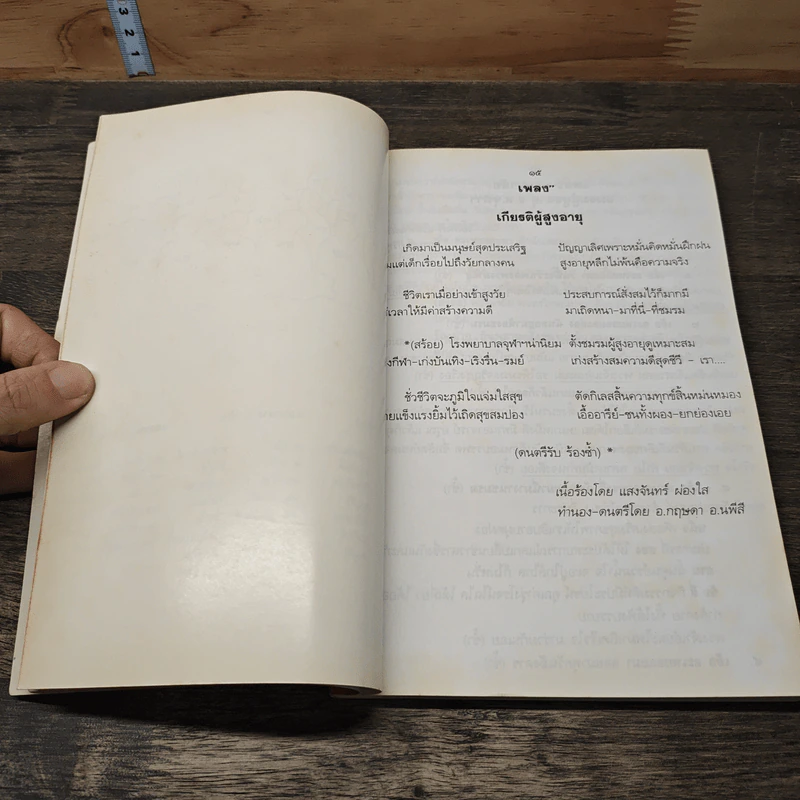 3
2
1
๑๕
เพลง"
เกียรติผู้สูงอายุ
เกิดมาเป็นมนุษย์สุดประเสริฐ ปัญญาเลิศเพราะหมั่นคิดหมั่นฝึกฝน
แต่เด็กเรื่อยไปถึงวัยกลางคน สูงอายุหลีกไม่พ้นคือความจริง
ชีวิตเราเมื่อย่างเข้าสูงวัย ประสบการณ์สั่งสมไว้ก็มากมี
เวลาให้มีค่าสร้างความดี มาเถิดหนา-มาที่นี่-ที่ชมรม
*(สร้อย) โรงพยาบาลจุฬาฯน่านิยม ตั้งชมรมผู้สูงอายุดูเหมาะสม
กีฬา-เก่งบันเทิง-เริงรื่น-รมย์ เก่งสร้างสมความดีสุดชีวี - เรา....
ชั่วชีวิตจะภูมิใจแจ่มใสสุข ตัดกิเลสสิ้นความทุกข์สิ้นหม่นหมอง
แข็งแรงยิ้มไว้เถิดสุขสมปอง เอื้ออารีย์-ชนทั้งผอง-ยกย่องเอย
(ดนตรีรับ ร้องซ้ำ) *
เนื้อร้องโดย แสงจันทร์ ผ่องใส
ทำนอง-ดนตรีโดย อ.กฤษดา อ.นพีสี